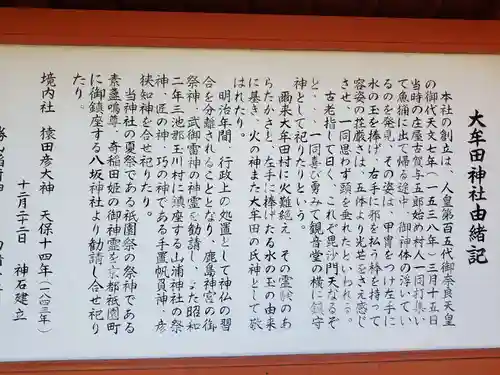 大牟田神社由緒記
本社の創立は、人皇第百五代御奈良天皇
の御代天文七年(一五三八年)三月十五日
当時の庄屋古賀与五郎始め村人一同打集い
て魚捕に出て帰る途中、御神体の浮いてい
るのを発見、その姿は、甲冑をつけ左手に
水の玉を捧げ、右手に邪を払う棒を持って
容姿の荘厳さは、五体より光芒をさえ感じ
させ、一同思わず頭を垂れたといわれる。
古老指して曰く、これぞ毘沙門天なるぞ
と、一同喜び勇みて観音堂の横に鎮守
神として祀りたりという。
爾来大牟田村に火難絶え、その霊験のあ
らたかさと、左手に捧げたる水の玉の由来
に基き、火の神また大牟田の氏神として敬
はれたり。
明治年間、行政上の処置として神仏の習
合を分離されることとなり、鹿島神宮の御
祭神、武御雷神の神霊を勧請し、また昭和
二年三池郡玉川村に鎮座する山浦神社の祭
神、匠の神、巧の神である手置帆負神、彦
狭知神を合せ祀りたり。
当神社の夏祭である祇園祭の祭神である
素盞鳴尊、奇稲田姫の御神霊を京都祇園町
に御鎮座する八坂神社より勧請し合せ祀り
たり。
境内社 猿田彦大神 天保十四年(一八四三年)
十二月二十二日 神石建立